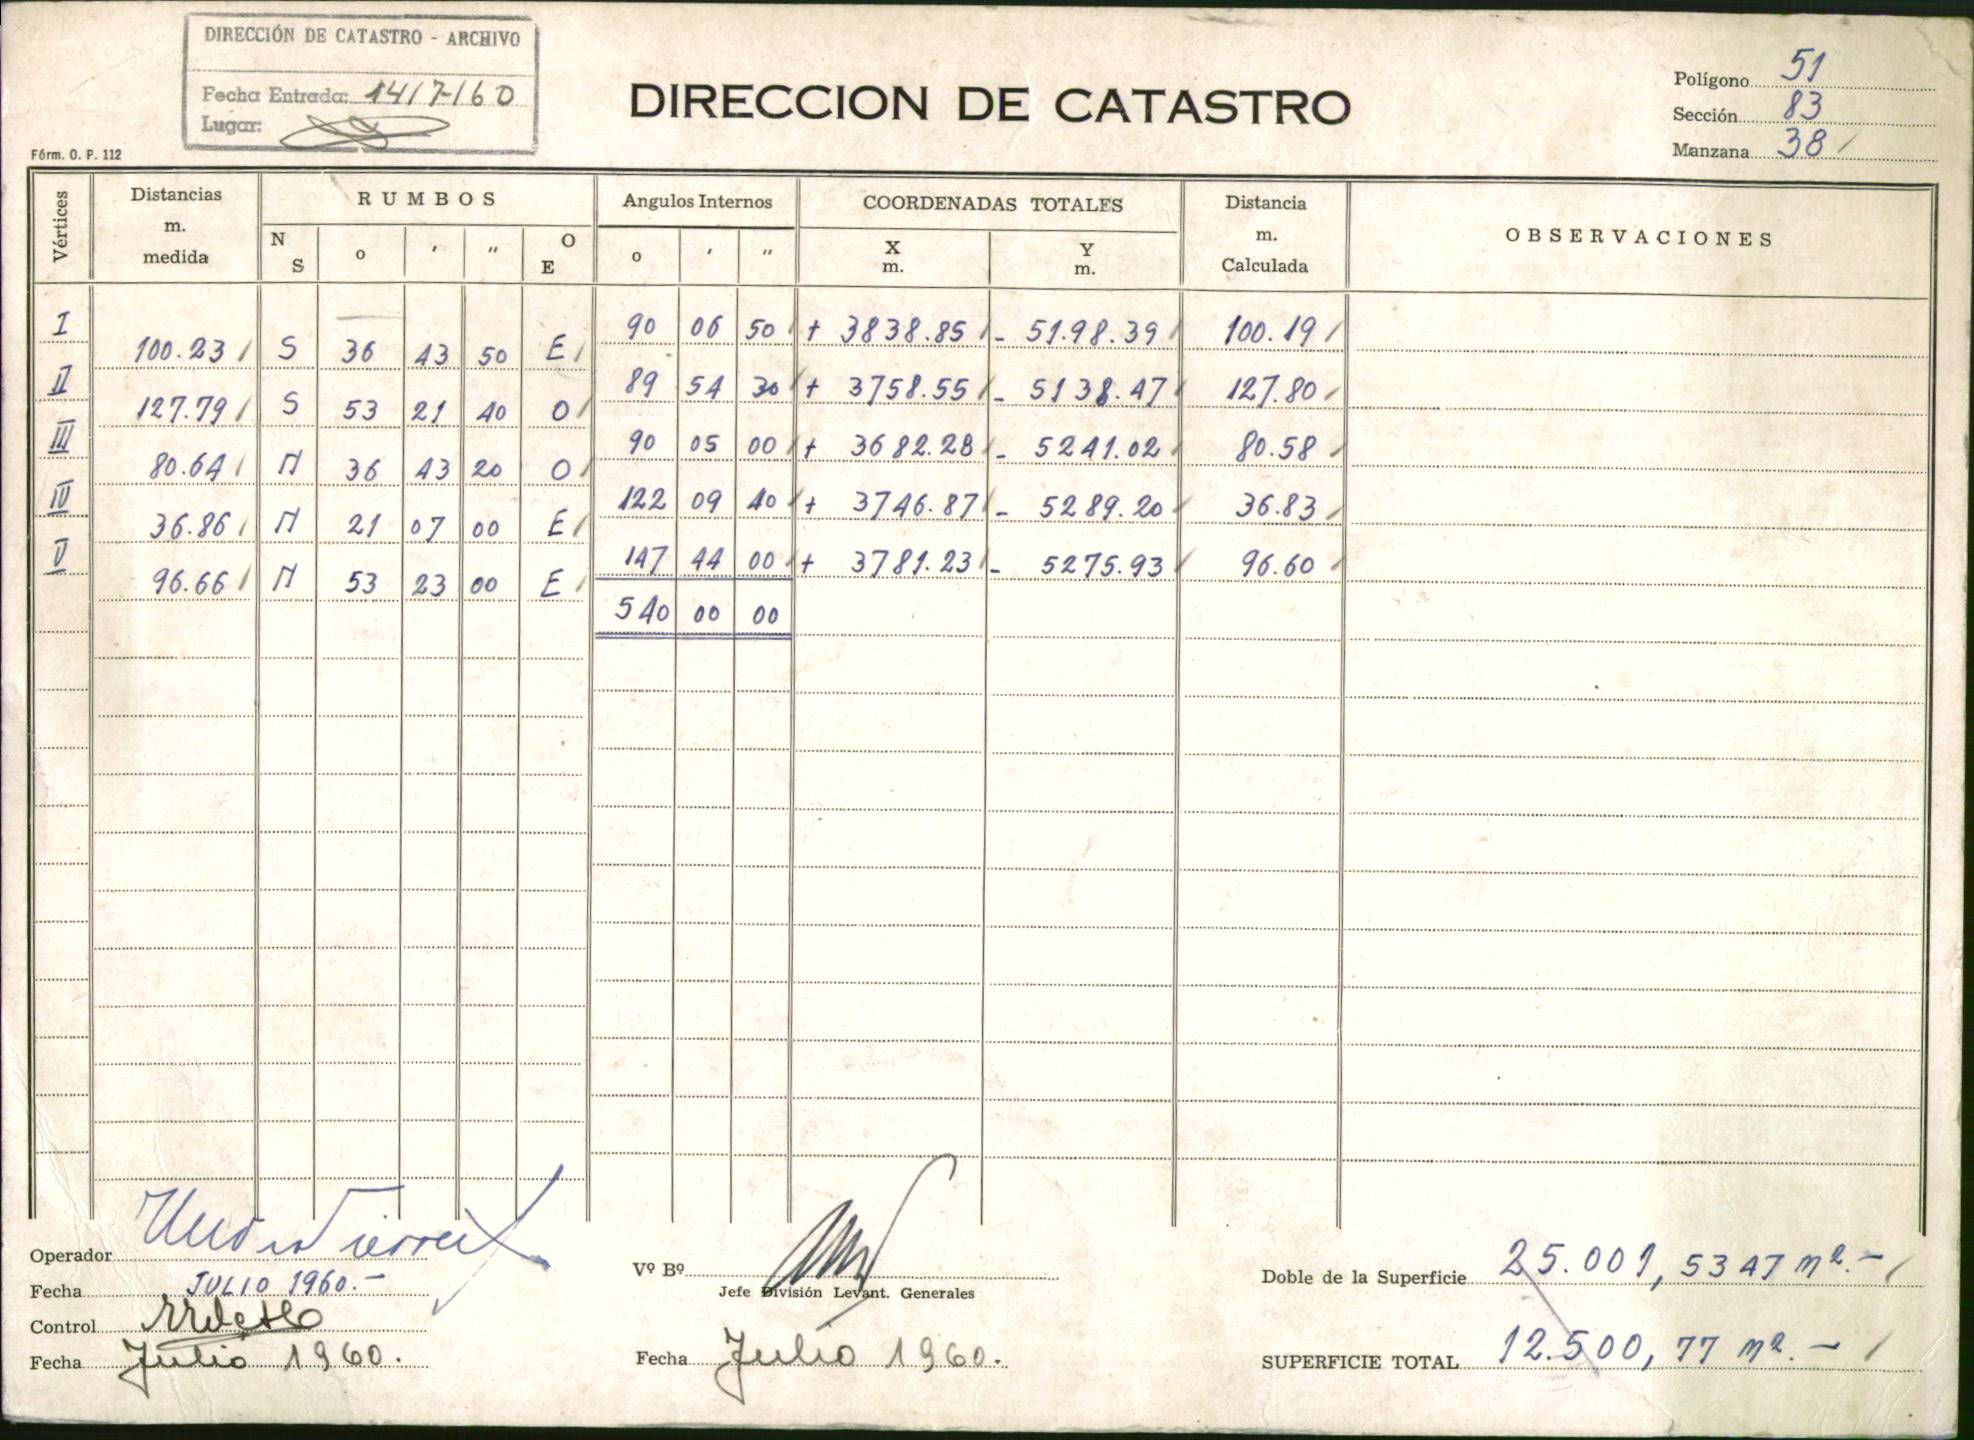 DIRECCIÓN DE CATASTRO - ARCHIVO
Fecha Entrada: 14/7/60
Lugar:
DIRECCION DE CATASTRO
Polígono 51
Sección 83
Manzana 38
Fórm. O. P. 112
Vértices Distancias m. medida RUMBOS Angulos Internos COORDENADAS TOTALES Distancia m. Calculada OBSERVACIONES
N S o ' " O E o ' " X m. Y m.
I 90 06 50 + 3838.85 - 5198.39 100.19
100.23 S 36 43 50 E
II 89 54 30 + 3758.55 - 5138.47 127.80
127.79 S 53 21 40 O
III 90 05 00 + 3682.28 - 5241.02 80.58
80.64 N 36 43 20 O
IV 122 09 40 + 3746.87 - 5289.20 36.83
36.86 N 21 07 00 E
V 147 44 00 + 3781.23 - 5275.93 96.60
96.66 N 53 23 00 E
540 00 00
Operador
Fecha JULIO 1960.-
Control
Fecha Julio 1960.
Vº Bº
Jefe División Levant. Generales
Fecha Julio 1960.
Doble de la Superficie 25.001,5347 m².-
SUPERFICIE TOTAL 12.500,77 m².-